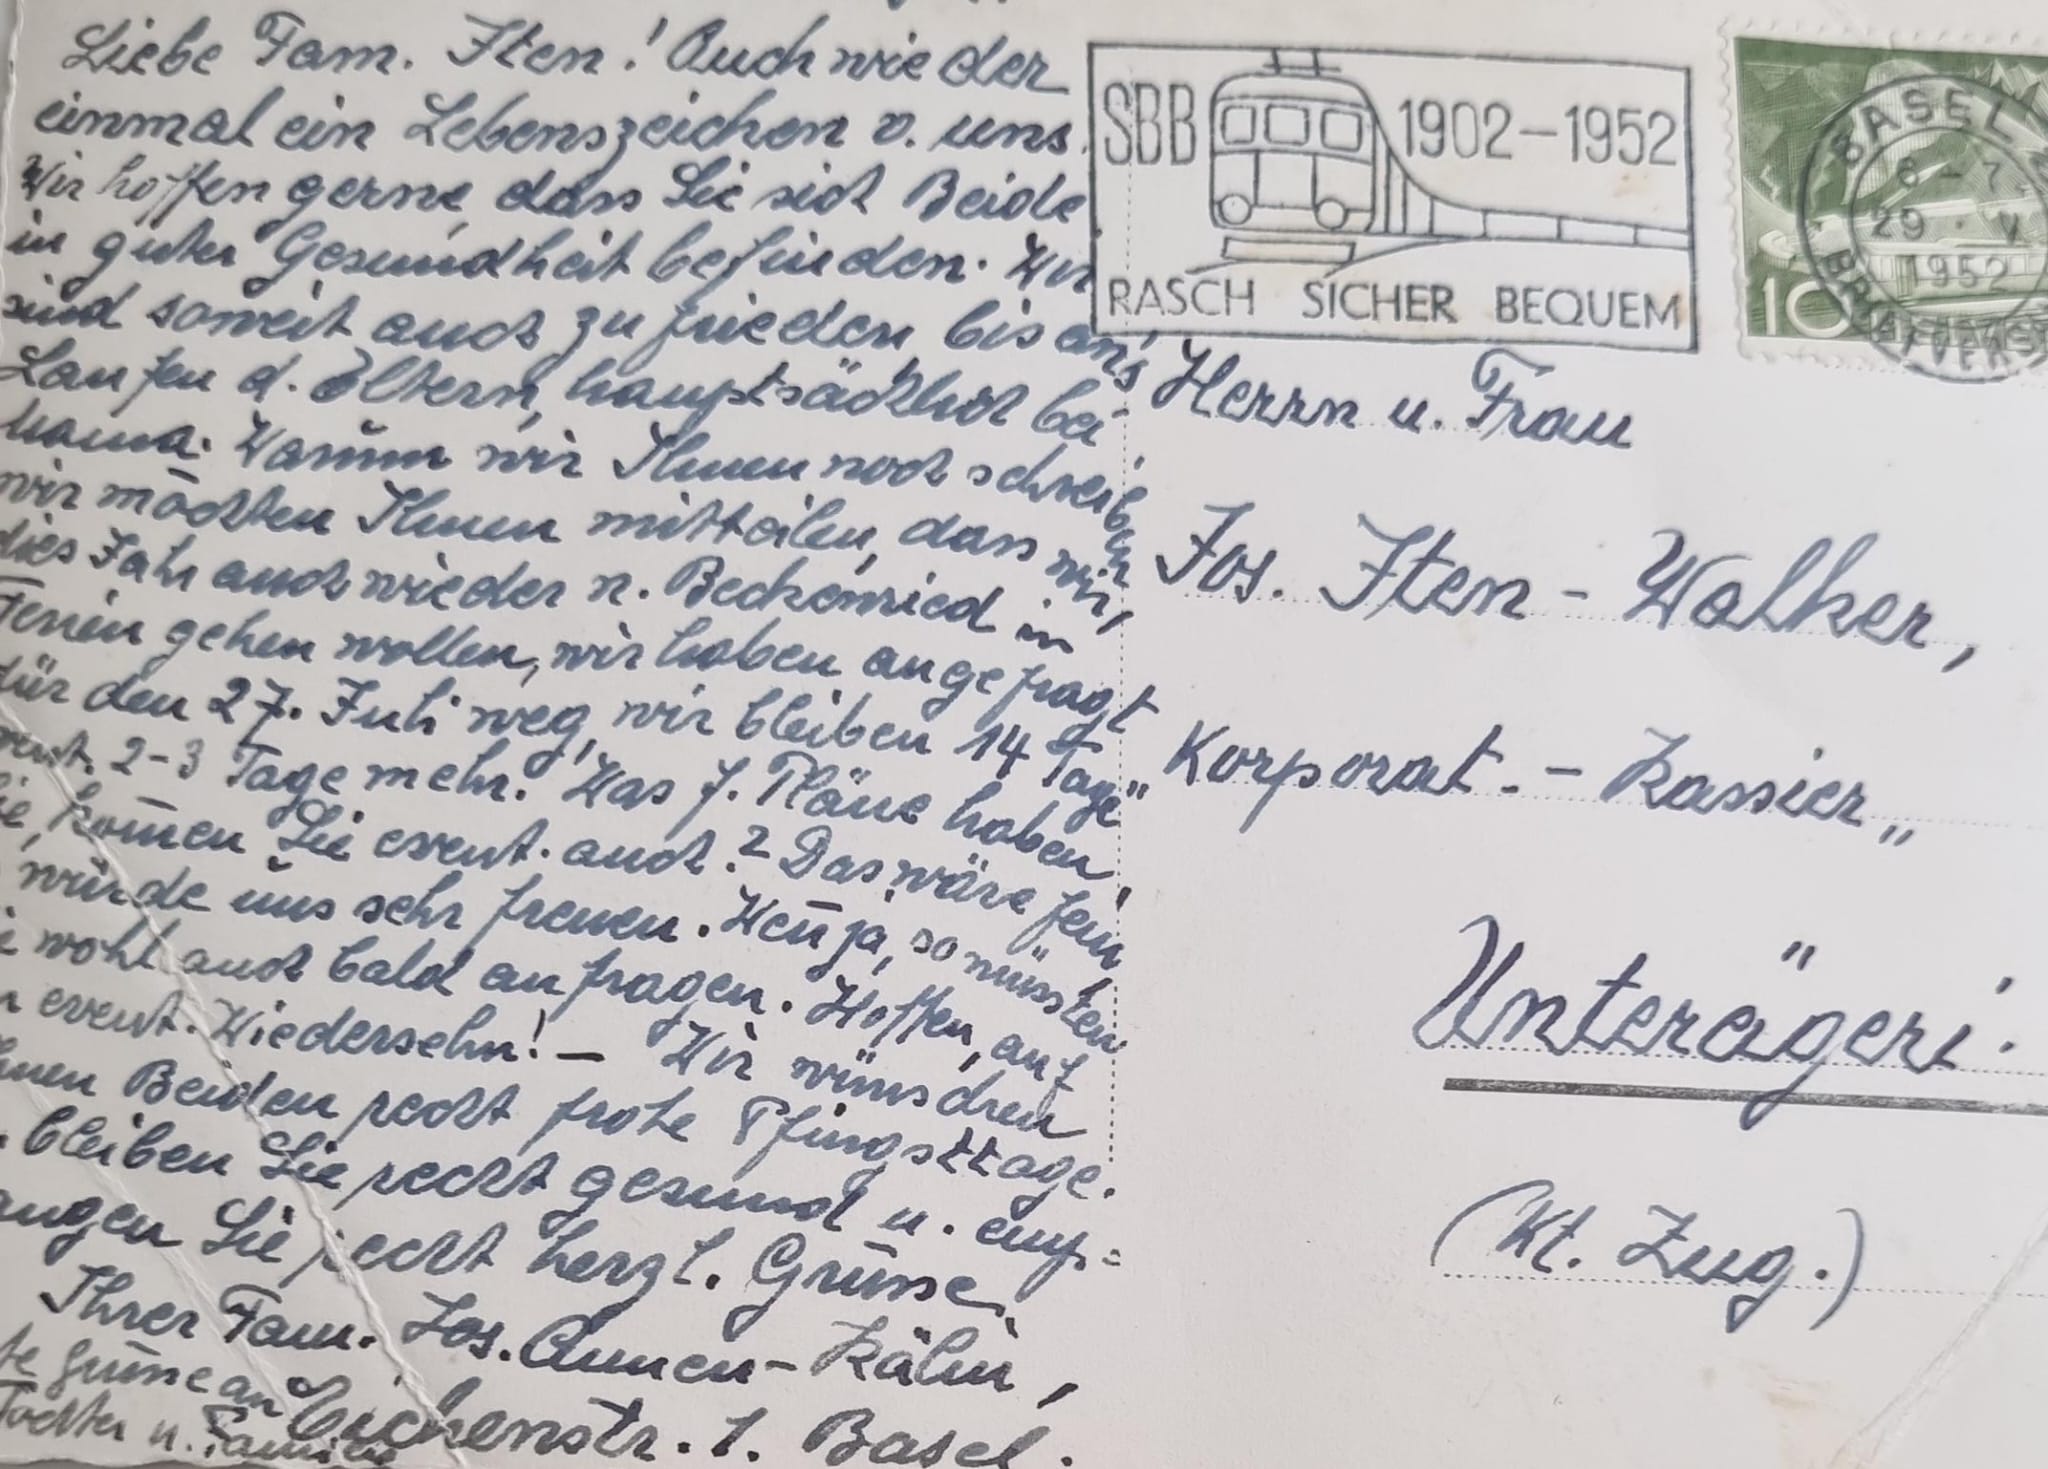 Liebe Fam. Iten! Auch wieder
einmal ein Lebenszeichen v. uns.
Wir hoffen gerne, dass Sie sich Beide
in guter Gesundheit befinden. Wir
sind soweit auch zufrieden bis an's
Laufen d. Eltern, hauptsächlich bei
Mama. Warum wir Ihnen noch schreiben
wir möchten Ihnen mitteilen, dass wir,
dies Jahr auch wieder n. Beckenried in
Ferien gehen wollen, wir haben angefragt
für den 27. Juli weg, wir bleiben 14 Tage"
event. 2-3 Tage mehr. Was f. Pläne haben
Sie, kom̄en Sie event. auch? Das wäre fein,
würde uns sehr freuen. Wen̄ ja, so müssten
wohl auch bald anfragen. Hoffen, auf
event. Wiedersehn! — Wir wünschen
Ihnen Beiden recht frohe Pfingsttage.
bleiben Sie recht gesund u. emp=
fangen Sie recht herzl. Grüsse
Ihrer Fam. Jos. Annen-Kälin,
Eichenstr. 1. Basel.
Grüsse an
Tochter u. Familie
SBB 1902-1952
RASCH SICHER BEQUEM
10
BASEL 2
6-7
29.V
1952
BRIEFVERS
Herrn u. Frau
Jos. Iten - Walker,
Korporat. - Kassier„
Unterägeri.
(Kt. Zug.)